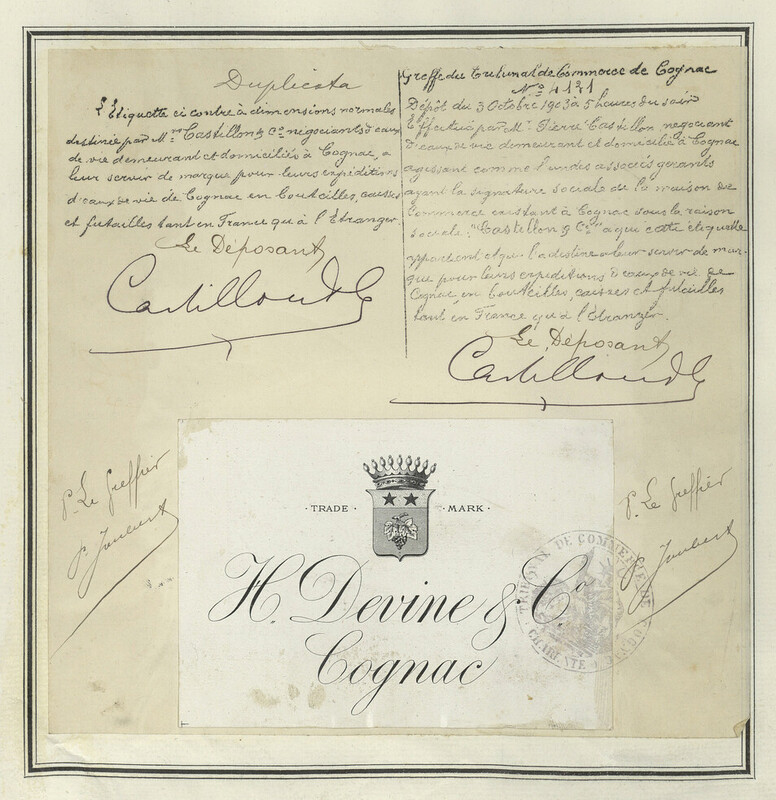 Duplicata
L'Etiquette ci contre à dimensions normales
destinée par Mrs Castillon & Co négociants d'eaux
de vie demeurant et domiciliés à Cognac, a
leur servir de marque pour leurs expéditions
d'eaux de vie de Cognac en bouteilles, caisses
et futailles tant en France qu'à l'Etranger.
Le Déposant,
Castillon & Co
Greffe du Tribunal de Commerce de Cognac
No 4121
Dépôt du 3 Octobre 1903 à 5 heures du soir
Effectué par Mr Pierre Castillon, négociant
d'eaux de vie demeurant et domicilié à Cognac
agissant comme l'un des associés gérants
ayant la signature sociale de la maison de
Commerce existant à Cognac sous la raison
sociale: "Castillon & Co" a qui cette étiquette
appartient et qui la destine a leur servir de mar-
que pour leurs expéditions d'eaux de vie de
Cognac en bouteilles, caisses et futailles
tant en France qu'à l'Etranger.
Le Déposant,
Castillon & Co
P. Le Greffier
P. Joubert
P. Le Greffier
P. Joubert
· TRADE · MARK ·
H. Devine & Co
Cognac
TRIBUNAL DE COMMERCE DE
CHARENTE